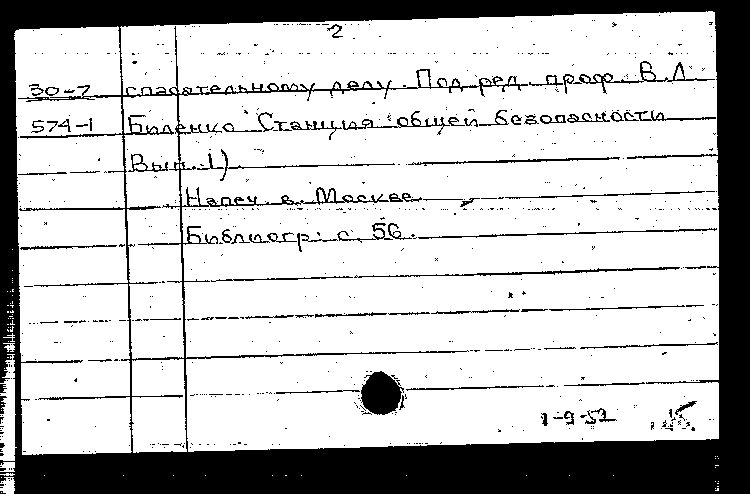 2
30-7 спасательному делу. Под ред. проф. В.Л.
574-1 Биленко. Станция общей безопасности
Вып. 1).
Напеч. в Москве.
Библиогр: с. 56.
1-9-52